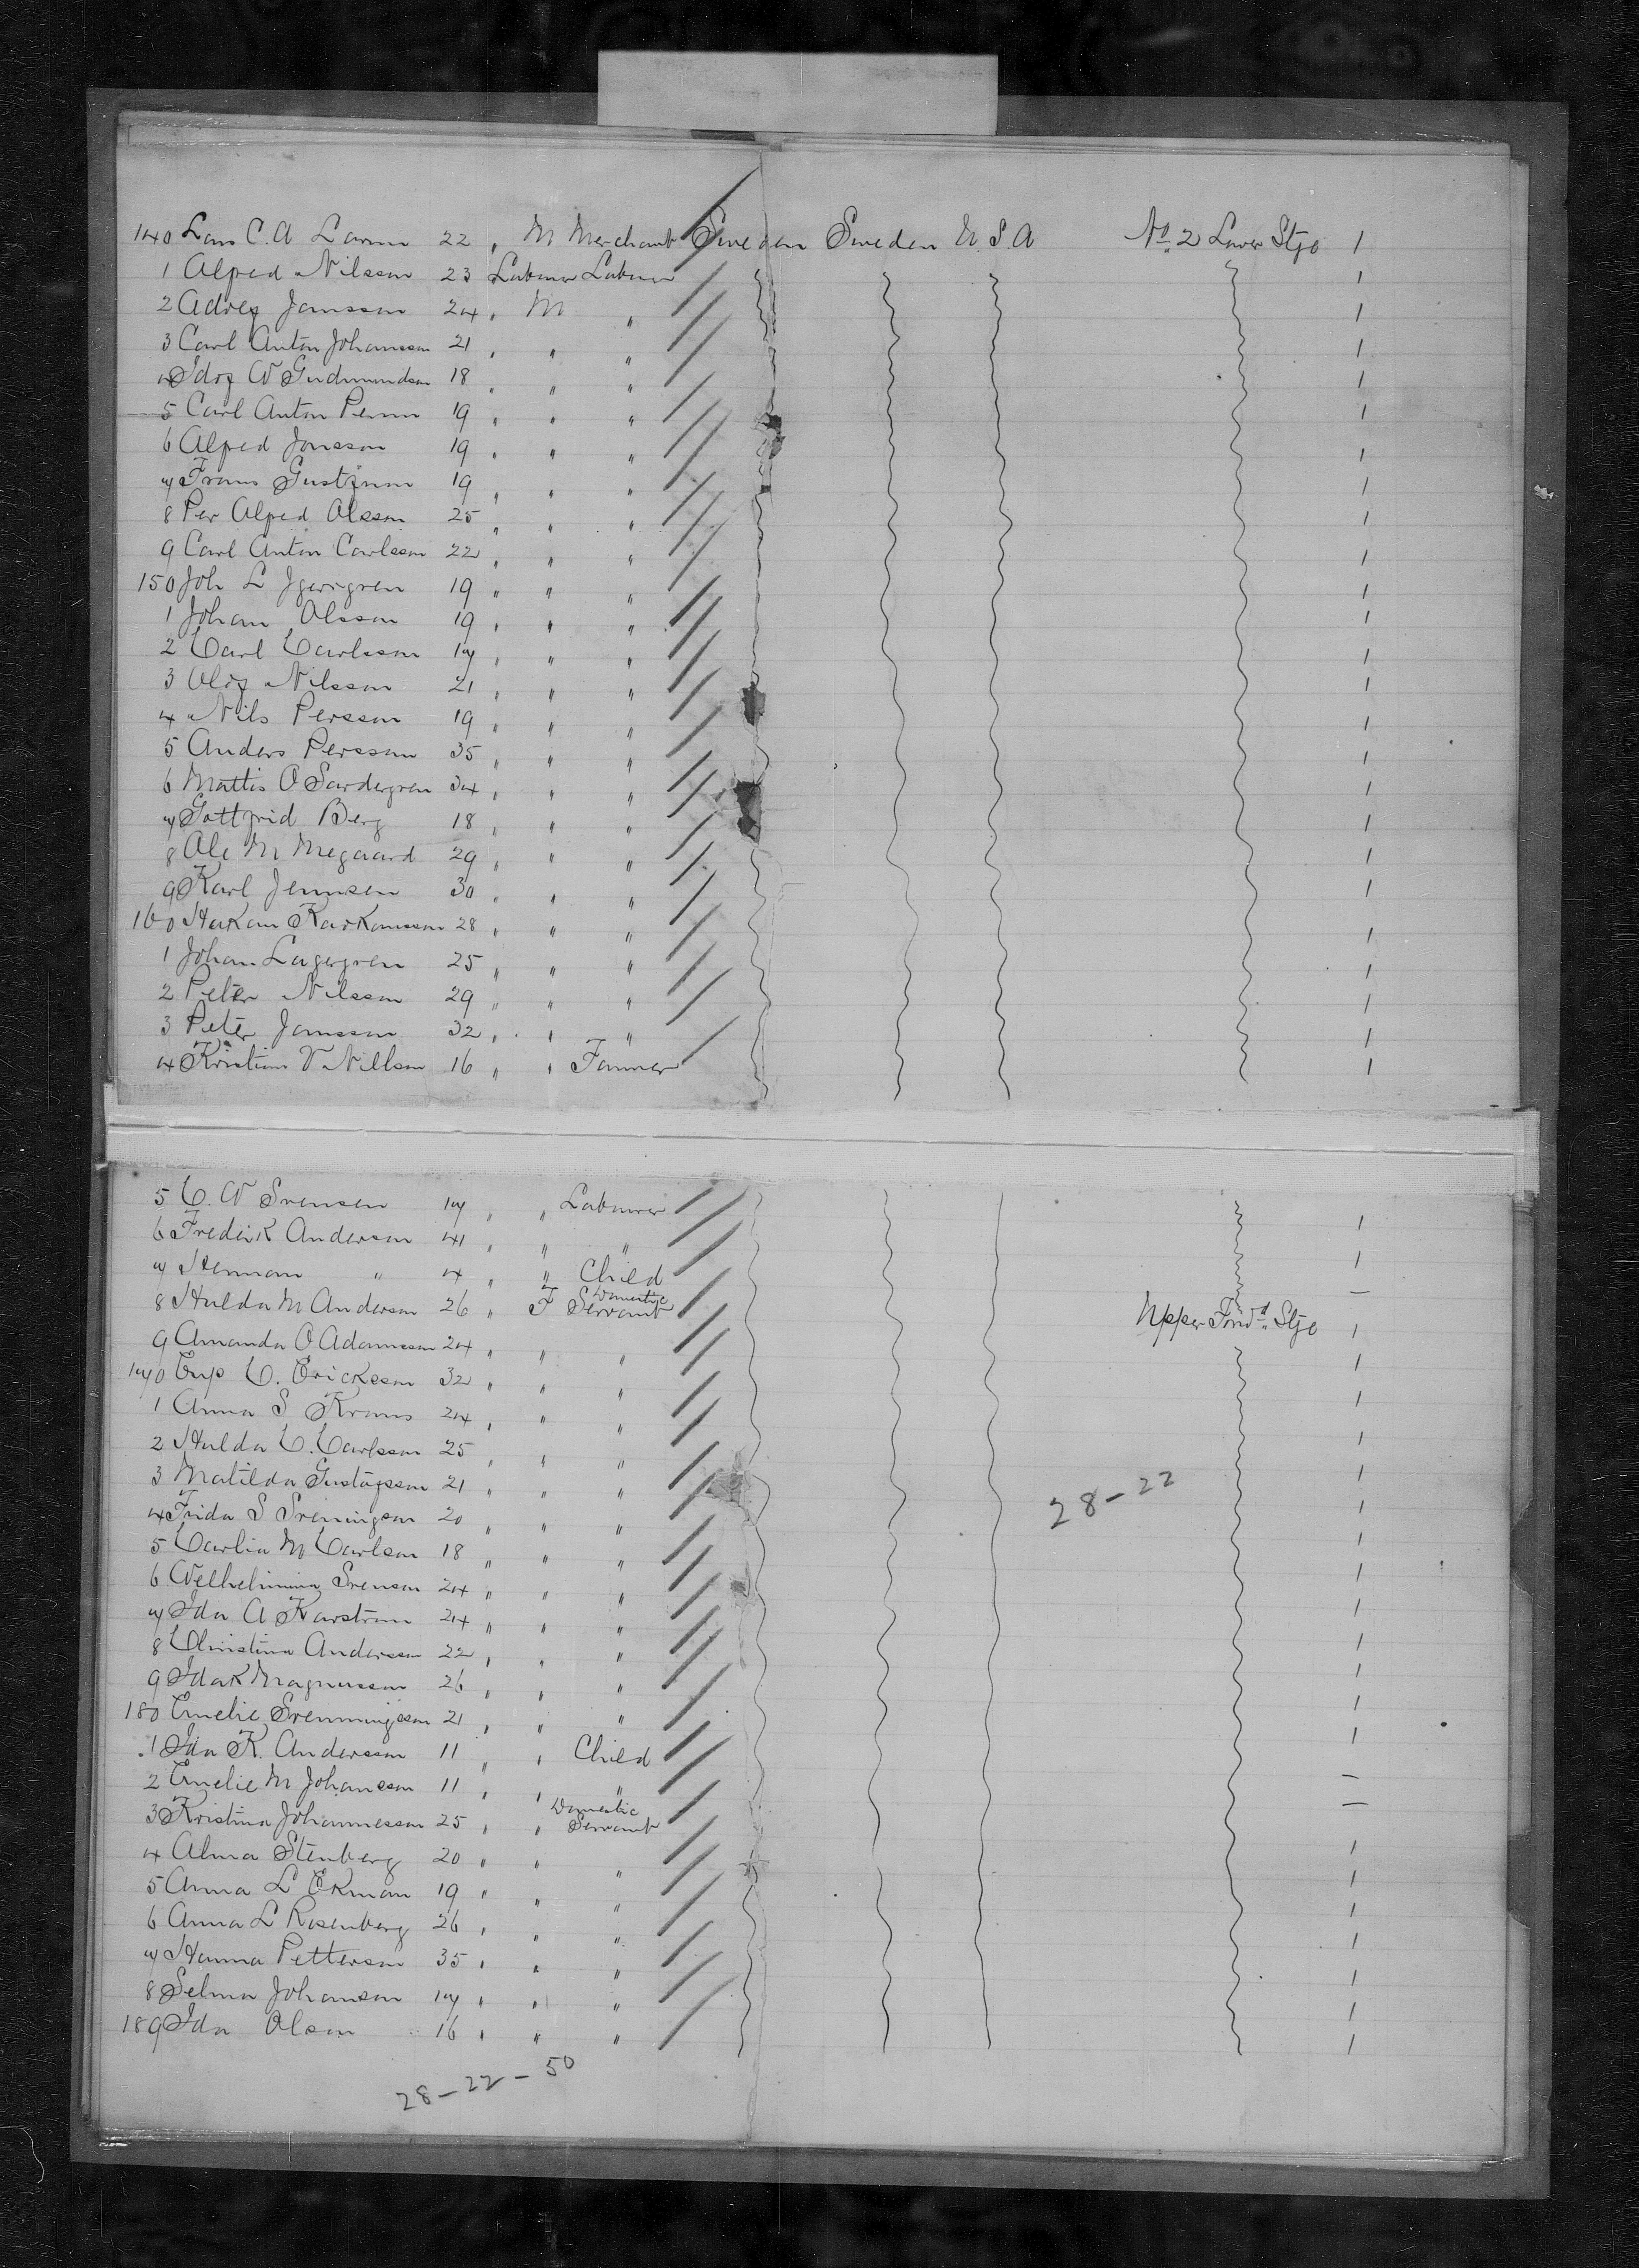 140 Lars C. A Larsn 22 " M Merchant Sweden Sweden U. S A No. 2 Lower Stge 1
1 Alfred Nilsson 23 Labourer Labourer 1
2 Adolf Jansson 24 " M " 1
3 Carl Anton Johansson 21 " " " 1
4 W Gudmundson 18 " " " 1
5 Carl Anton 19 " " " 1
6 Alfred Jonsson 19 " " " 1
7 Frans 19 " " " 1
8 Per Alfred Olsson 25 " " " 1
9 Carl Anton Carlsson 22 " " " 1
150 Joh L 19 " " " 1
1 Johan Olsson 19 " " " 1
2 Carl Carlsson 17 " " " 1
3 Olof Nilsson 21 " " " 1
4 Nils Persson 19 " " " 1
5 Anders Persson 35 " " " 1
6 Mattis O Sardergren 34 " " " 1
7 Gottfrid Berg 18 " " " 1
8 Ole M Megaard 29 " " " 1
9 Karl Jennsen 30 " " " 1
160 Hakan 28 " " " 1
1 Johan Lagergren 25 " " " 1
2 Peter Nilsson 29 " " " 1
3 Peter Jansson 32 " " " 1
4 Kristian V Nillson 16 " " Farmer 1
5 C. W Svensen 17 " " Labourer 1
6 Fredrik Anderson 41 " " " 1
7 Herman " 4 " " Child —
8 Hulda M Anderson 26 " F Domestic Servant Upper Forwd. Stge 1
9 Amanda O Adamsson 24 " " " 1
170 C. Ericksson 32 " " " 1
1 Anna S Krans 24 " " " 1
2 Hulda C. Carlsson 25 " " " 1
3 Matilda Gustafsson 21 " " " 1
28-22
4 Frida S Svenningson 20 " " " 1
5 Carlin M Carlson 18 " " " 1
6 Welhelmina Svenson 24 " " " 1
7 Ida A Karstrom 24 " " " 1
8 Christina Andersson 22 " " " 1
9 Ida K Magnusson 26 " " " 1
180 Emelie Svenningsson 21 " " " 1
1 Ida K. Andersson 11 " " Child —
2 Emelie M Johansson 11 " " " —
3 Kristina Johannesson 25 " " Domestic Servant 1
4 Alma Stenberg 20 " " " 1
5 Anna L Ekman 19 " " " 1
6 Anna L Rosenberg 26 " " " 1
7 Hanna Petterson 35 " " " 1
8 Selma Johanson 17 " " " 1
189 Ida Olson 16 " " " 1
28-22-50